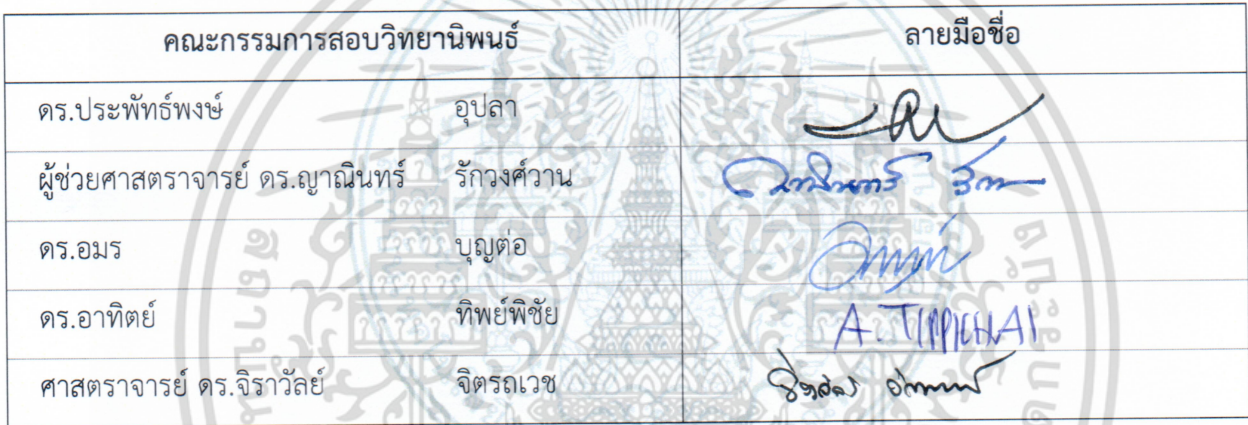 คณะกรรมการสอบวิทยานิพนธ์ ลายมือชื่อ
ดร.ประพัทธ์พงษ์ อุปลา
ผู้ช่วยศาสตราจารย์ ดร.ญาณินทร์ รักวงศ์วาน
ดร.อมร บุญต่อ
ดร.อาทิตย์ ทิพย์พิชัย A. TIPPICHAI
ศาสตราจารย์ ดร.จิราวัลย์ จิตรถเวช